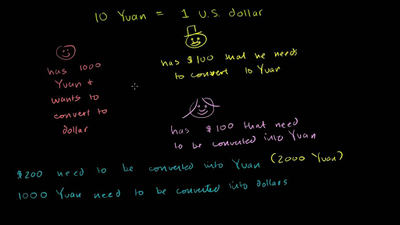 10 Yuan = 1 U.S. dollar
has 1000
Yuan +
wants to
convert to
dollar
has $100 that he needs
to convert to Yuan
has $100 that need
to be converted into Yuan
$200 need to be converted into Yuan (2000 Yuan)
1000 Yuan need to be converted into dollars